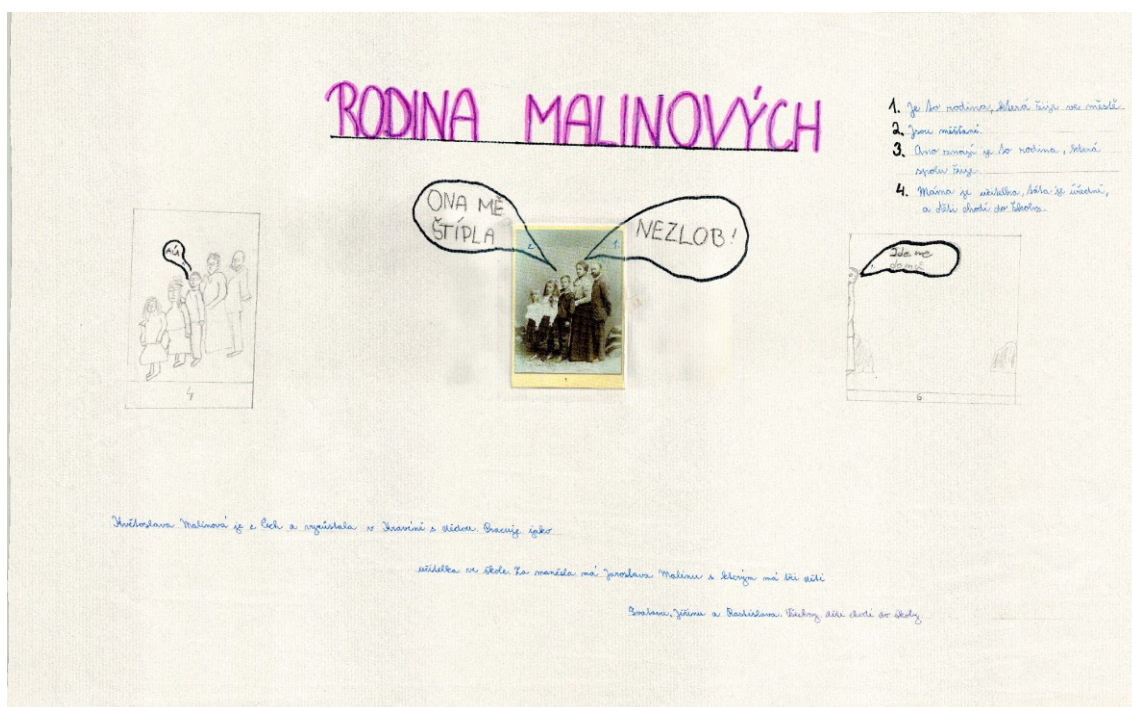 RODINA MALINOVÝCH
1. Je to rodina, která žije ve městě.
2. Jsou měšťani.
3. Ano znají je to rodina, která
spolu žije.
4. Máma je učitelka, táta je úředni,
a děti chodí do školy.
ONA MĚ
ŠTÍPLA
NEZLOB!
2.
1.
AÚ
Jdeme
domů
1
4
6
Květoslava Malinová je z Čech a vyrůstala v s dědou. Pracuje jako
učitelka ve škole. Za manžela má Jaroslava Malinu s kterým má tři děti
Jiřinu a Rastislava. Všechny děti chodí do školy.